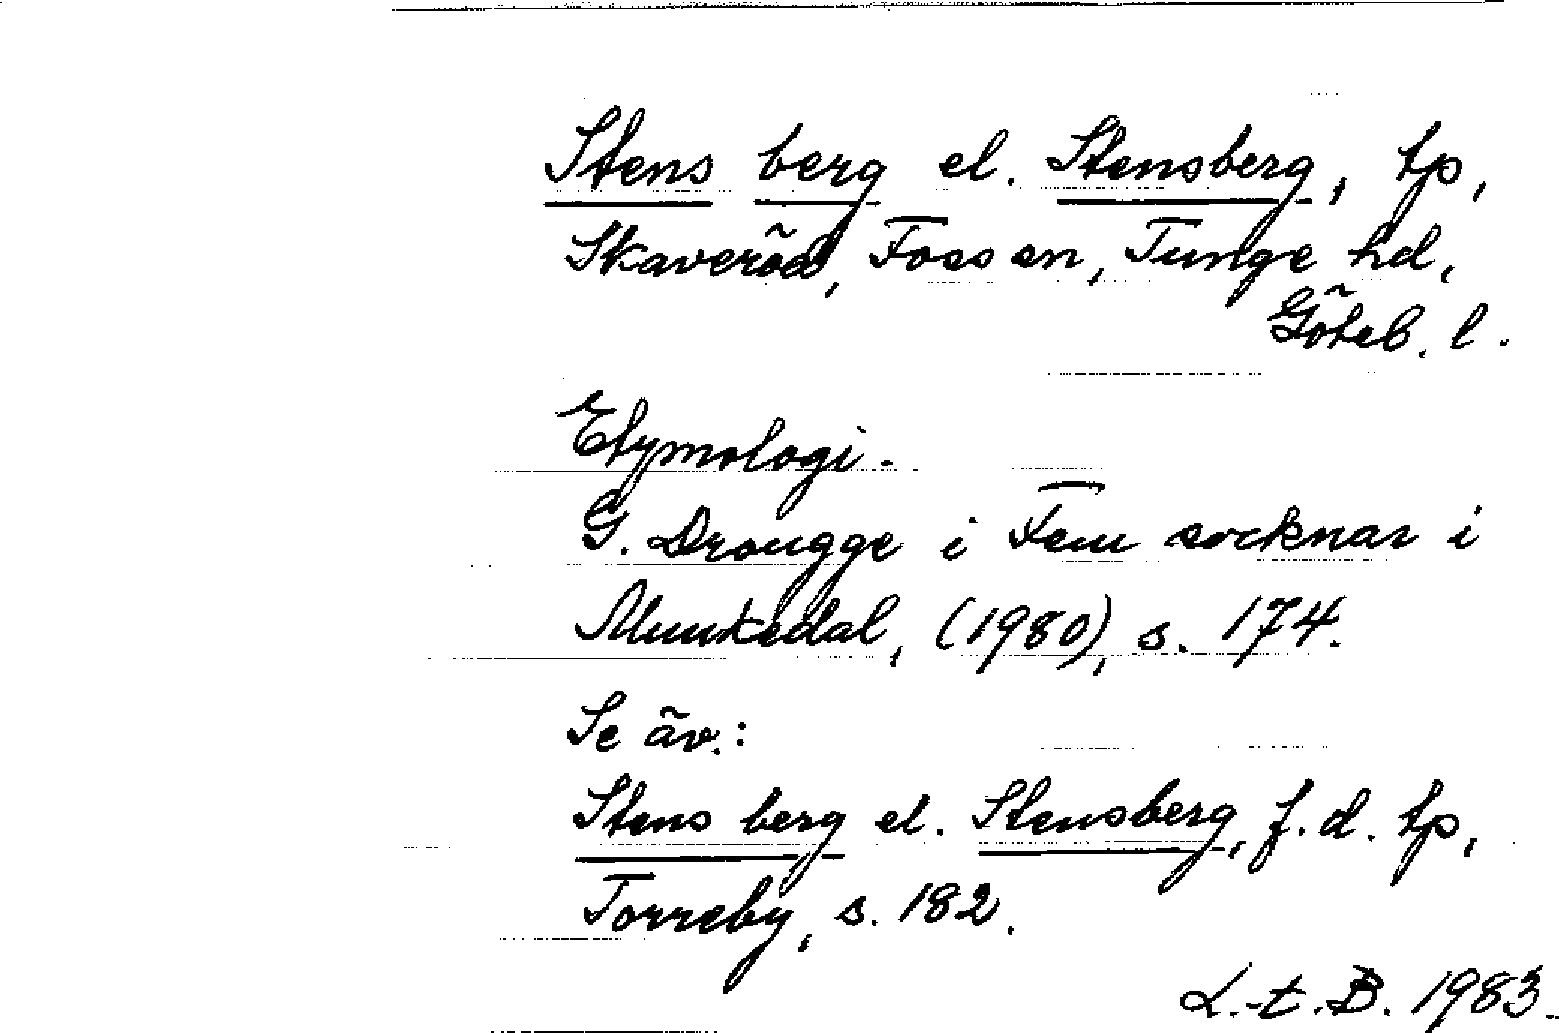 Stens berg el. Stensberg, tp,
Skaveröd, Foss sn, Tunge hd,
Göteb. l.
Etymologi.
G. Drougge i Fem socknar i
Munkedal, (1980), s. 174.
Se äv.:
Stens berg el. Stensberg, f.d. tp,
Torreby, s. 182.
L.-t. B. 1983.